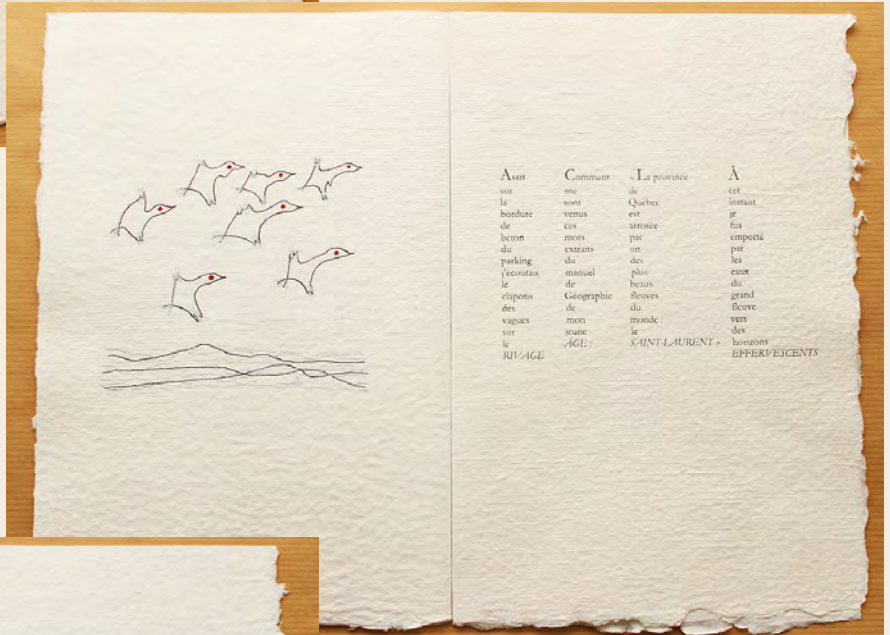 Assis
sur
la
bordure
de
béton
du
parking
j'écoutais
le
clapotis
des
vagues
sur
le
RIVAGE
Comment
me
sont
venus
ces
mots
extraits
du
manuel
de
Géographie
de
mon
jeune
ÂGE :
« La province
de
Québec
est
arrosée
par
un
des
plus
beaux
fleuves
du
monde :
le
SAINT-LAURENT »
À
cet
instant
je
fus
emporté
par
les
eaux
du
grand
fleuve
vers
des
horizons
EFFERVESCENTS